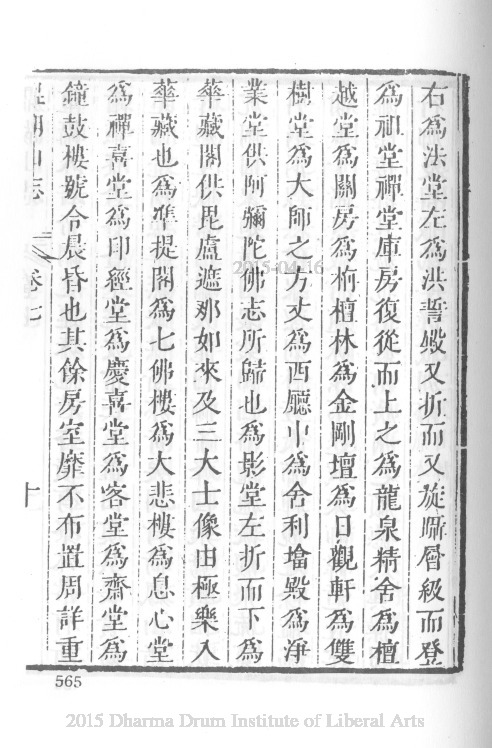 右爲法堂左爲洪誓殿又折而又旋躋層級而登
爲祖堂禪堂庫房復從而上之爲龍泉精舍爲檀
越堂爲關房爲栴檀林爲金剛壇爲日觀軒爲雙
樹堂爲大師之方丈爲西廳中爲舍利墖殿爲淨
業堂供阿彌陀佛志所歸也爲影堂左折而下爲
華藏閣供毘盧遮那如來及三大士像由極樂入
華藏也爲準提閣爲七佛樓爲大悲樓爲息心堂
爲禪喜堂爲印經堂爲慶喜堂爲客堂爲齋堂爲
鐘鼓樓號令晨昏也其餘房室靡不布置周詳重
山志 卷七 十
565
2015-04-16
2015 Dharma Drum Institute of Liberal Arts